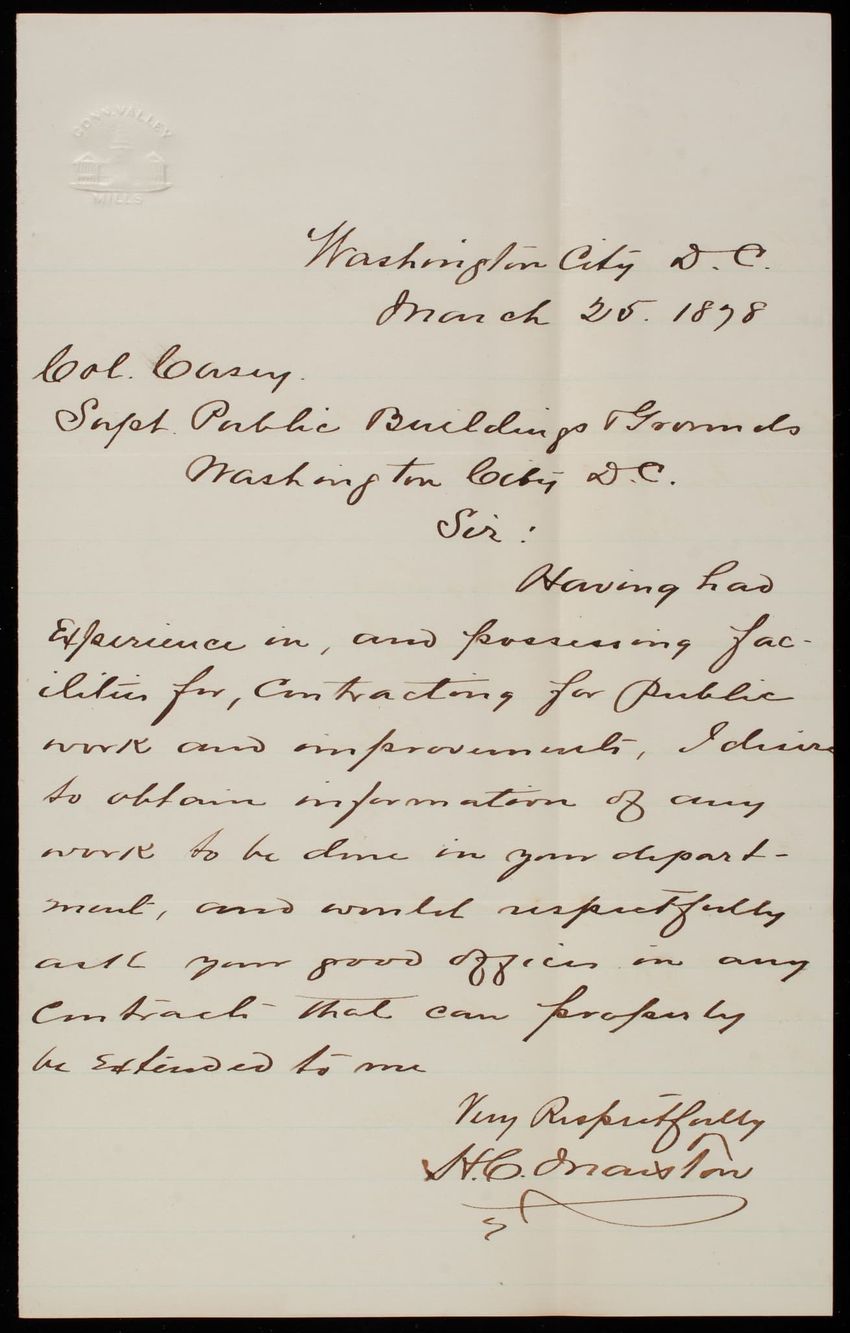 CONN. VALLEY
MILLS
Washington City D.C.
March 25. 1878
Col. Casey.
Supt. Public Buildings & Grounds
Washington City D.C.
Sir:
Having had
Experience in, and possessing fac-
ilities for, Contracting for Public
work and improvements, I desire
to obtain information of any
work to be done in your depart-
ment, and would respectfully
ask your good offices in any
Contracts that can properly
be Extended to me
Very Respectfully
H.C. Marston